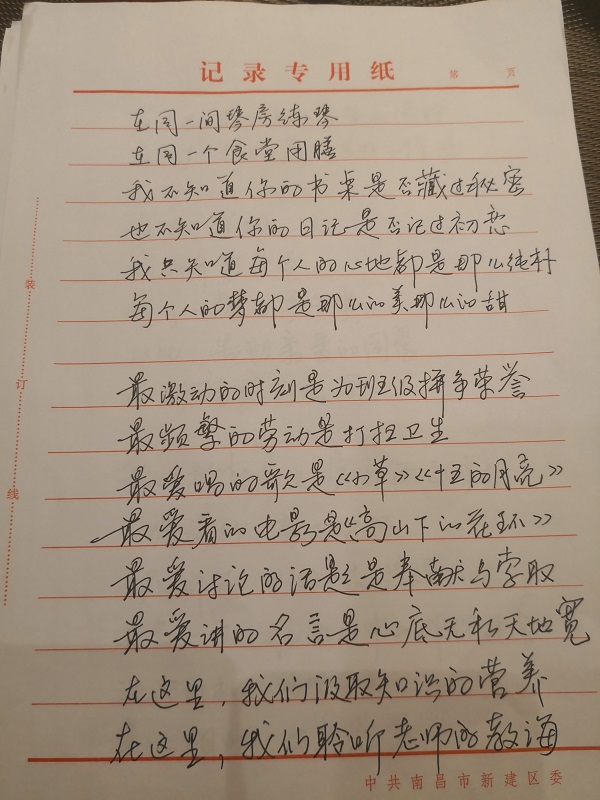 记录专用纸 第 页
在同一间琴房练琴
在同一个食堂用膳
我不知道你的书桌是否藏过秘密
也不知道你的日记是否记过初恋
我只知道每个人的心地都是那么纯朴
每个人的梦都是那么的美那么的甜
最激动的时刻是为班级拼争荣誉
最频繁的劳动是打扫卫生
最爱唱的歌是《小草》《十五的月亮》
最爱看的电影是《高山下的花环》
最爱讨论的话题是奉献与索取
最爱讲的名言是心底无私天地宽
在这里,我们汲取知识的营养
在这里,我们聆听老师的教诲
装
订
线
中共南昌市新建区委